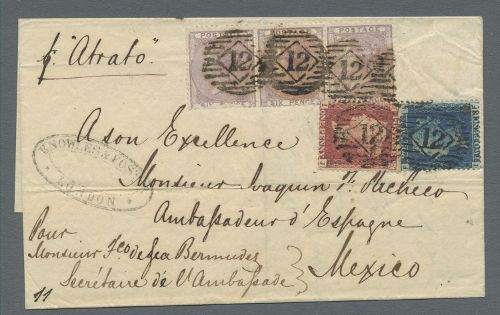 pr "Atrato".
POSTAGE POSTAGE POSTAGE
12 12 12
SIX PENCE
12 12
KNOWLES & FOSTER
LONDON
A Son Excellence
Monsieur Joaquin F. Pacheco
Ambassadeur d'Espagne
Mexico
Pour
Monsieur Fco de Bermudez
Secrétaire de l'Ambassade